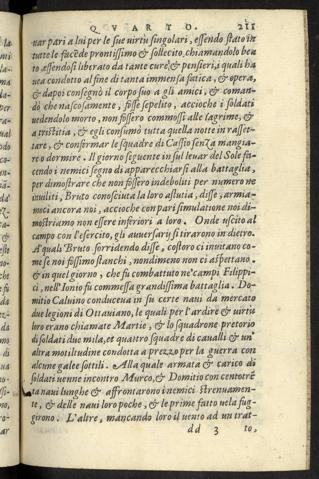 QVARTO. 211
nar pari a lui per le sue uirtù singolari, essendo stato in
tutte le faccēde prontissimo & sollecito, chiamandolo bea
to essendosi liberato da tante cure, & pensieri, i quali ha
uea condotto al fine di tanta immensa fatica, & opera,
& dapoi consegnò il corpo suo a gli amici, & coman-
dò che nascosamente, fusse sepelito, accioche i soldati
uedendolo morto, non fussero commossi alle lagrime, &
a tristitia, & egli consumò tutta quella notte in rasset-
tare, & confirmar le squadre di Cassio senza mangia-
re o dormire. Il giorno seguente in sul leuar del Sole fa-
cendo i nemici segno di apparecchiarsi alla battaglia,
per dimostrare che non fussero indeboliti per numero ne
inuiliti, Bruto conosciuta la loro astutia, disse, armia-
moci ancora noi, accioche con pari simulatione noi di-
mostriamo non essere inferiori a loro. Onde uscito al
campo con l'esercito, gli auuersarij si tirarono in dietro.
A quali Bruto sorridendo disse, costoro ci inuitano co-
me se noi fussimo stanchi, nondimeno non ci aspettano.
& in quel giorno, che fu combattuto ne'campi Filippi-
ci, nell'Ionio fu commessa grandissima battaglia. Do-
mitio Caluino conduceua in su certe naui da mercato
due legioni di Ottauiano, le quali per l'ardire & uirtù
loro erano chiamate Martie, & lo squadrone pretorio
di soldati due mila, et quattro squadre di caualli & un'
altra moltitudine condotta a prezzo per la guerra con
alcune galee sottili. Alla quale armata & carico di
soldati uenne incontro Murco, & Domitio con centotrē
ta naui lunghe & affrontarono i nemici strenuamen-
te, & delle naui loro poche, & le prime fatto uela fug-
girono. L'altre, mancando loro il uento ad un trat-
dd 3 to,